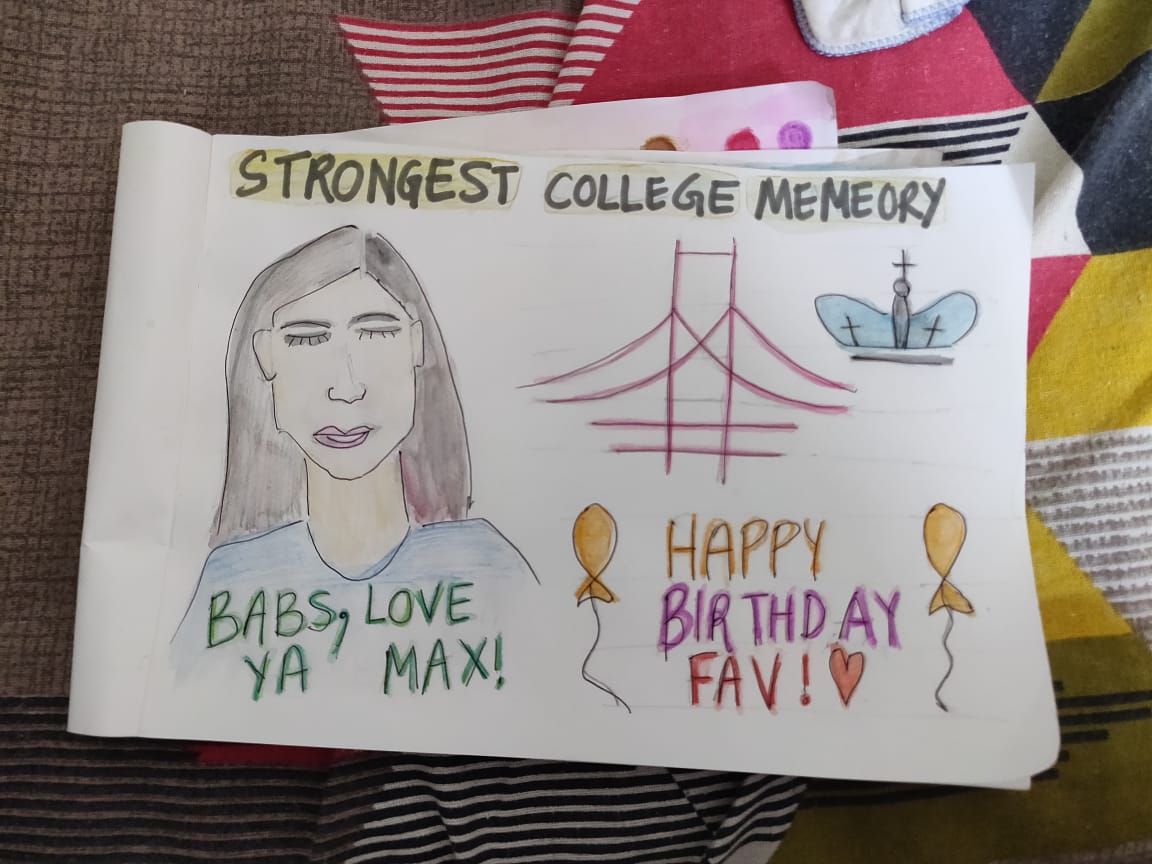 STRONGEST COLLEGE MEMEORY
BABS, LOVE
YA MAX!
HAPPY
BIRTHDAY
FAV!